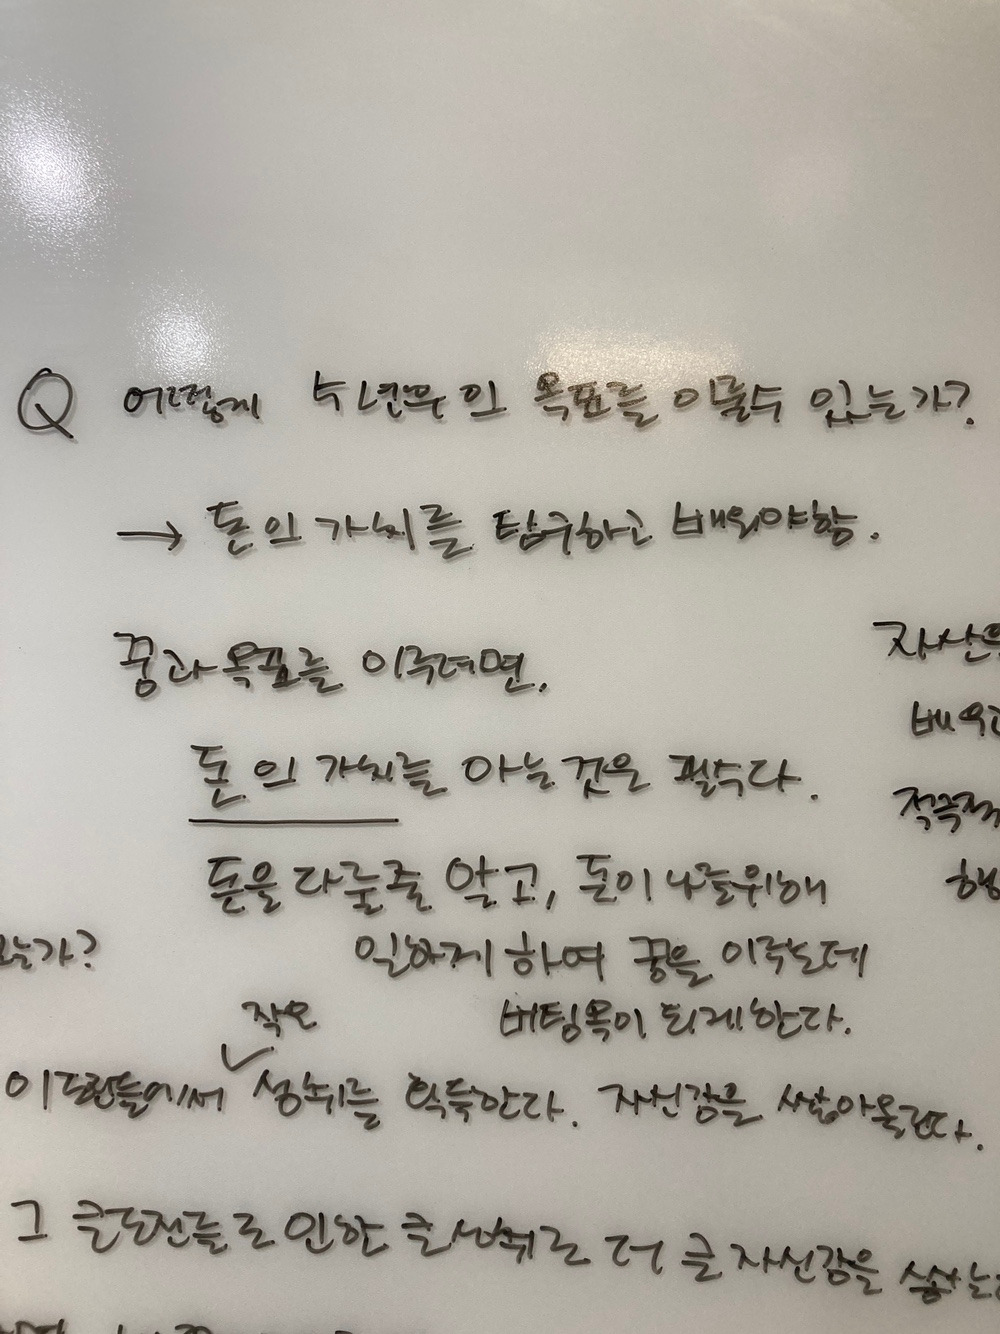 Q 어떻게 수년후의 목표를 이룰수 있는가?
→ 돈의 가치를 탐구하고 배워야함.
꿈과 목표를 이루려면,
돈의 가치를 아는것은 필수다.
돈을 다룰줄 알고, 돈이 나를위해
일하게 하여 꿈을 이루는데
버팀목이 되게한다.
자산
배우고
적극적
행
는가?
작은
이 도전들에서 성취를 획득한다. 자신감을 쌓아올린다.
그 큰도전들로 인한 큰성취로 더 큰 자신감을 쌓는